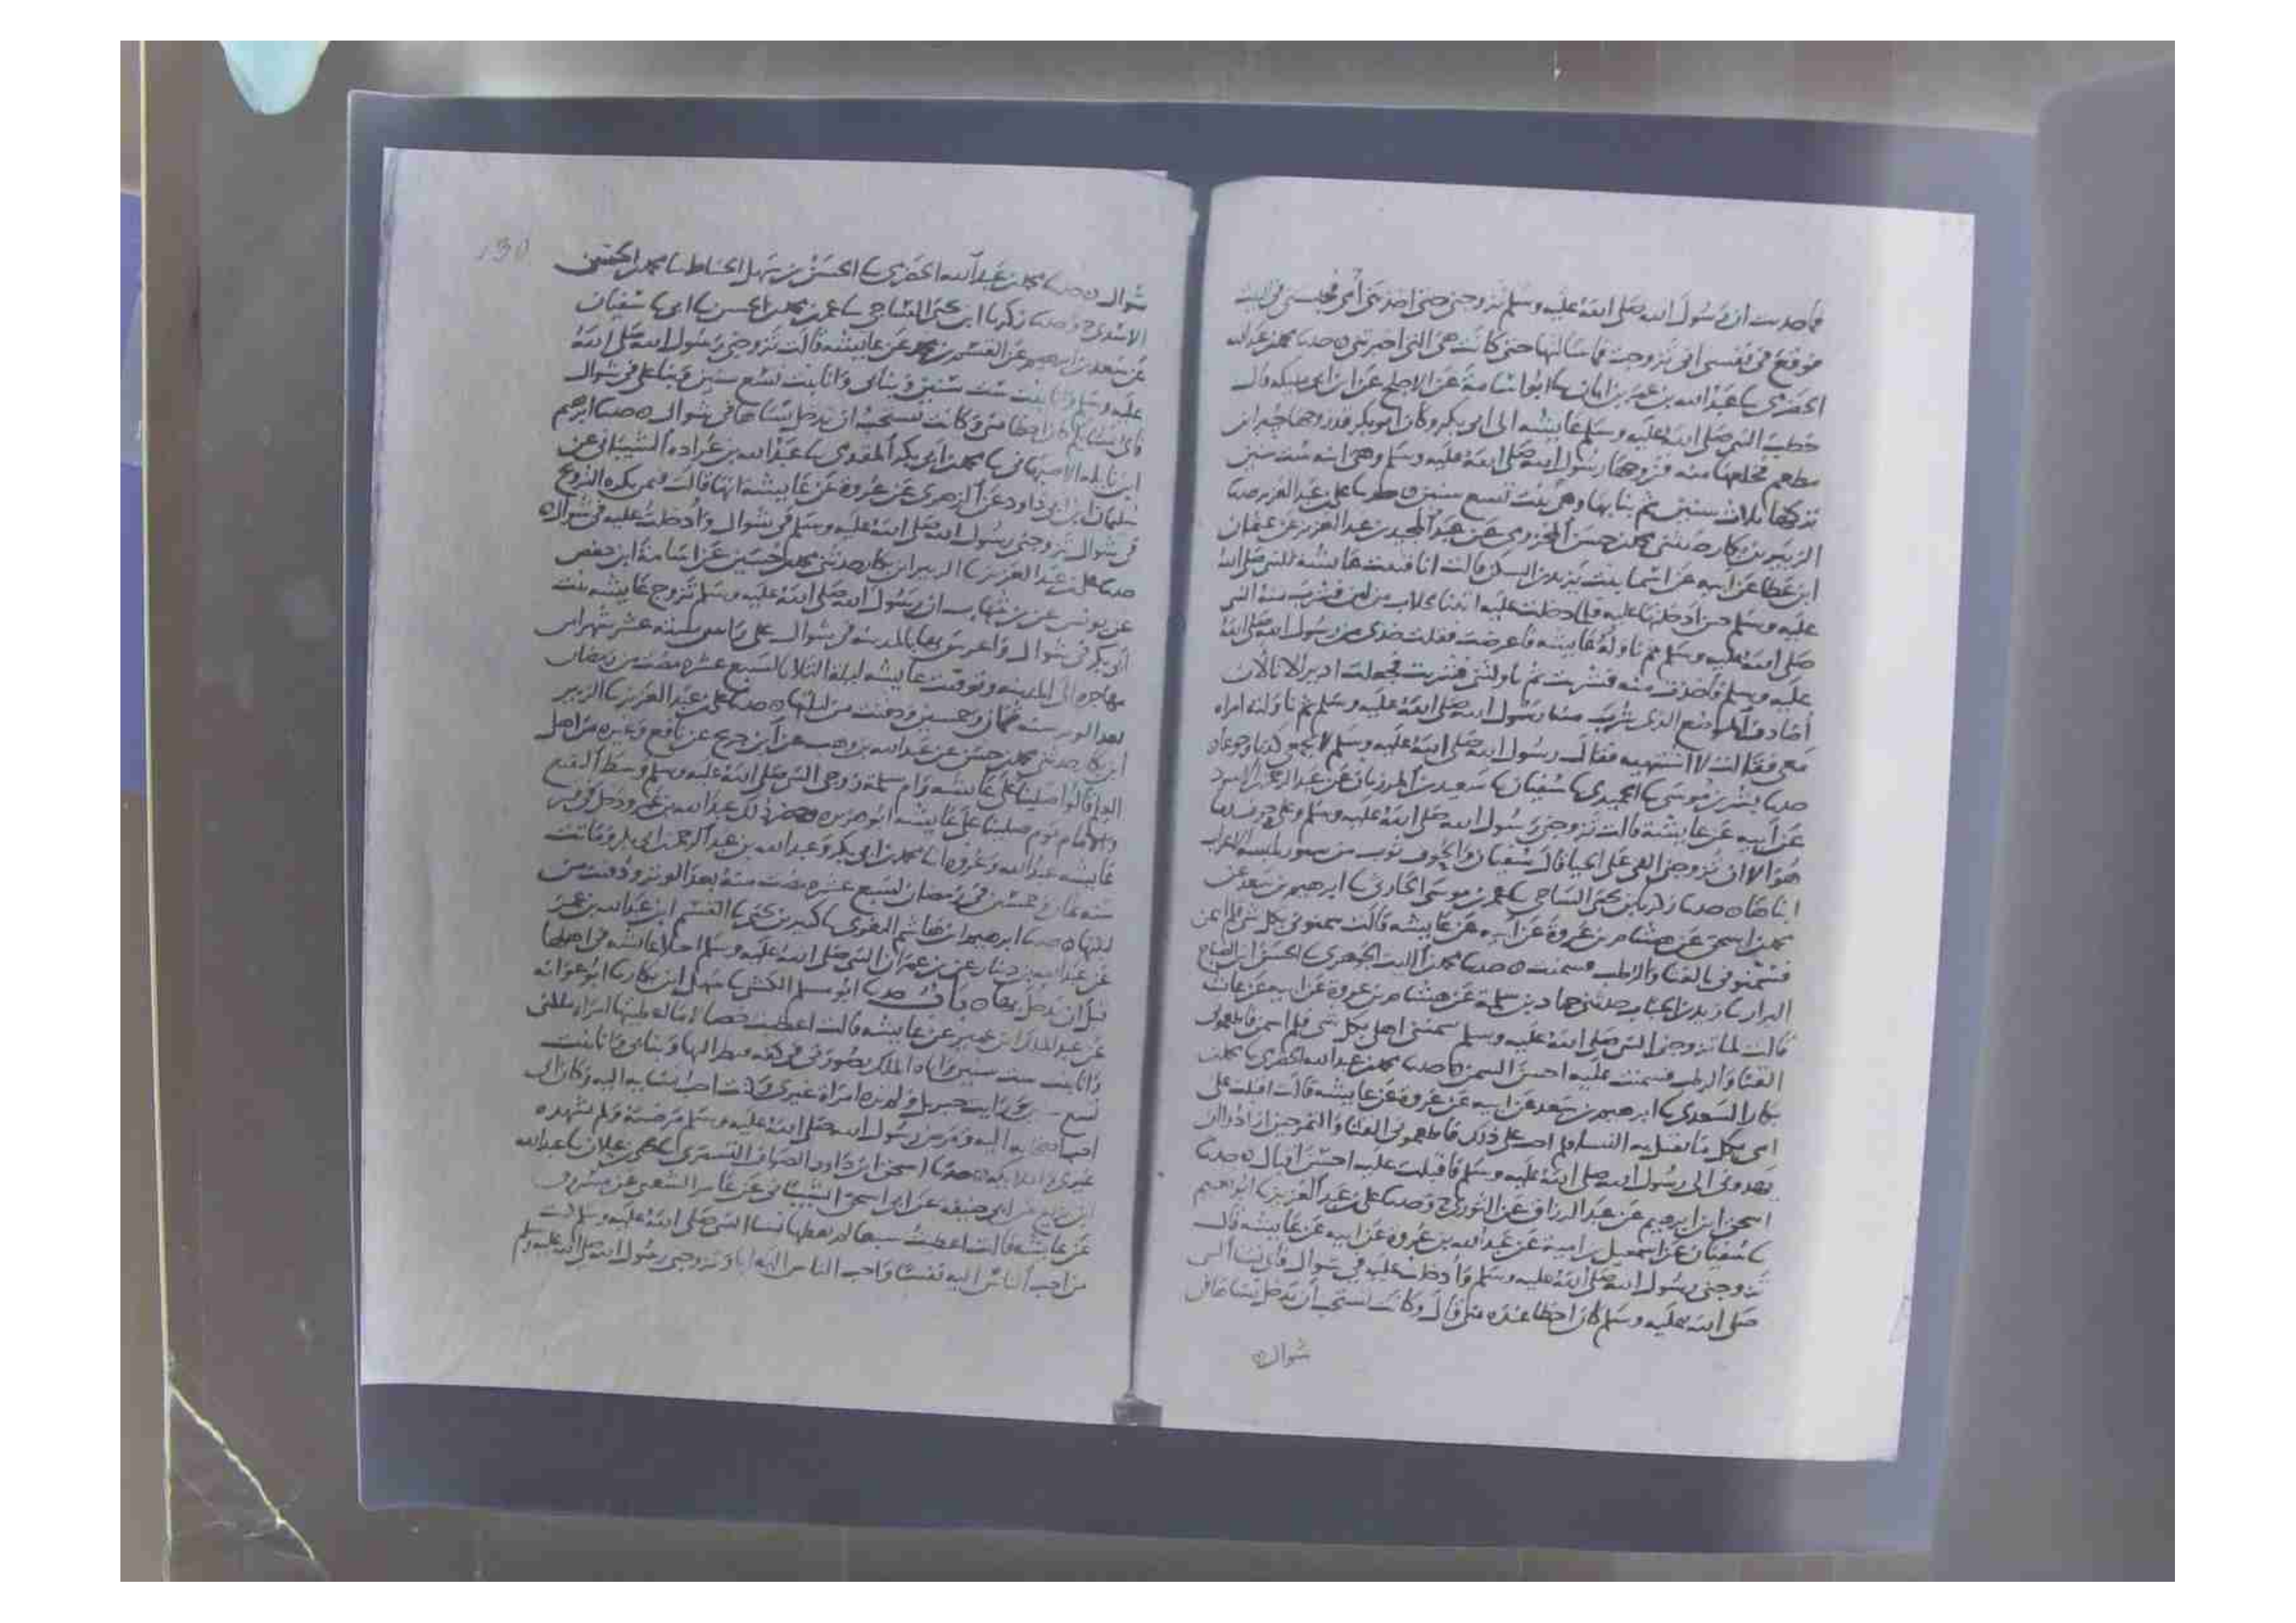 فما صدقت ان رسول الله صلى الله عليه وسلم تزوجني حتى اخذتني امي فحبستني في البيت
فوقع في نفسي اني تزوجت فما سالتها حتى كانت هي التي اخبرتني حدثنا محمد بن عبدالله
الحضرمي ثنا عبد الله بن عمر بن ابان ثنا ابو اسامة عن الاجلح عن ابن ابي مليكه قال
خطب النبي صلى الله عليه وسلم عايشه الى ابي بكر وكان ابو بكر قد زوجها جبير ابن
مطعم فخلعها منه فزوجها رسول الله صلى الله عليه وسلم وهي ابنه ست سنين
تركها ثلاث سنين ثم بنا بها وهي بنت تسع سنين حدثنا علي بن عبد العزيز حدثنا
الزبير بن بكار حدثني محمد بن حسن المخزومي عن عبد المجيد بن عبد العزيز عن عثمان
ابن عطا عن ابيه عن اسما بنت يزيد بن السكن قالت انا قينت عايشه للنبي صلى الله
عليه وسلم حين ادخلتها عليه فلما دخلت عليه اتنا بحلاب من لبن فشرب منه النبي
صلى الله عليه وسلم ثم ناوله عايشه فاعرضت فقلت خذي من رسول الله صلى الله
عليه وسلم فاخذت منه فشربت ثم ناولتني فشربت فجعلت ادير الانا لان
اصادف الموضع الذي شرب منه رسول الله صلى الله عليه وسلم ثم ناولته امراه
معي فقالت لا اشتهيه فقال رسول الله صلى الله عليه وسلم لا تجمعي كذبا وجوعا
حدثنا بشر بن موسى ثنا الحميدي ثنا سفيان ثنا سعيد بن المرزبان عن عبد الرحمن بن الاسود
عن ابيه عن عايشة قالت تزوجني رسول الله صلى الله عليه وسلم وعلي حوف فما
هو الا ان تزوجني القي علي الحيا قال سفيان والحوف ثوب من سيور تلبسه الاعراب
ابناها حدثنا زكريا بن يحيى الساجي ثنا عمر بن موسى الحادي ثنا ابرهيم بن سعد عن
محمد بن اسحق عن هشام بن عروة عن ابيه عن عايشه قالت سمنوني بكل شي فلم اسمن
فسمنوني بالقثا والرطب فسمنت حدثنا محمد بن الليث الجوهري ثنا الحسن ابن الصباح
البزار ثنا زيد بن الحباب حدثني حماد بن سلمة عن هشام بن عروة عن ابيه عن عايشه
قالت لما تزوجني النبي صلى الله عليه وسلم سمنني اهلي بكل شي فلم اسمن فاطعموني
القثا والرطب فسمنت عليه احسن السمن حدثنا محمد بن عبد الله الحضرمي ثنا محمد بن
بكار السعدي ثنا ابرهيم بن سعد عن ابيه عن عروة عن عايشه قالت اقبلت علي
امي بكل ما تقبل به النسا فلم اصب على ذلك فاطعموني القثا والتمر حين ارادوا ان
يهدوني الى رسول الله صلى الله عليه وسلم فاقبلت عليه احسن اقبال حدثنا
اسحق ابن ابرهيم عن عبد الرزاق عن الثوري ح وحدثنا علي بن عبد العزيز ثنا ابو نعيم
ثنا سفيان عن اسمعيل بن امية عن عبد الله بن عروة عن ابيه عن عايشه قالت
تزوجني رسول الله صلى الله عليه وسلم وادخلت عليه في شوال فاي نسا النبي
صلى الله عليه وسلم كان احظا عنده مني قال وكانت تستحب ان تدخل نساها في
شوال
130
شوال حدثنا محمد بن عبد الله الحضرمي ثنا الحسن بن سهل الحناط ثنا محمد بن الحسن
الاسدي ح وحدثنا زكريا ابن يحيى الساجي ثنا عمر بن محمد بن الحسن ثنا ابي ثنا سفيان
عن سعد بن ابرهيم عن القسم بن محمد عن عايشه قالت تزوجني رسول الله صلى الله
عليه وسلم وانا بنت ست سنين وبنا بي وانا بنت تسع سنين وبنا علي في شوال
فاي نسايه كان احظا مني وكانت تستحب ان تدخل نساها في شوال حدثنا ابرهيم
ابن نايله الاصبهاني ثنا محمد بن ابي بكر المقدمي ثنا عبد الله بن عراده الشيباني عن
سليمان ابن ابي داود عن الزهري عن عروة عن عايشه انها قالت فمن يكره التزويج
في شوال تزوجني رسول الله صلى الله عليه وسلم في شوال وادخلت عليه في شوال
حدثنا علي بن عبد العزيز ثنا الزبير ابن بكار حدثني محمد بن حسين عن اسامة ابن حفص
عن يونس عن بن شهاب ان رسول الله صلى الله عليه وسلم تزوج عايشه بنت
ابي بكر في شوال واعرس بها بالمدينه في شوال على راس ستة عشر شهرا من
مهاجره الى المدينه وتوفيت عايشه ليله الثلاثا لسبع عشره مضت من رمضان
بعد الوتر سنه ثمان وخمسين ودفنت من ليلتها حدثنا علي بن عبد العزيز ثنا الزبير
ابن بكار حدثني محمد بن حسن عن عبد الله بن وهب عن ابن جريج عن نافع وغيره من اهل
العلم قالوا صلينا على عايشه وام سلمة زوجي النبي صلى الله عليه وسلم وسط البقيع
والامام يوم صلينا على عايشه ابو هريره وحضر ذلك عبد الله بن عمر ودخل في قبر
عايشه عبد الله وعروه ابنا محمد بن ابي بكر وعبد الله بن عبد الرحمن بن ابي بكر وماتت
سنه ثمان وخمسين في رمضان لسبع عشره مضت منه بعد الوتر ودفنت من
ليلتها حدثنا ابرهيم ابن هاشم البغوي ثنا كثير بن يحيى ثنا القسم ابن عبد الله بن عمر
عن عبد الله بن دينار عن بن عمر ان النبي صلى الله عليه وسلم اجلا عايشه في اهلها
قبل ان يدخل بها حدثنا ابو مسلم الكشي ثنا سهل ابن بكار ثنا ابو عوانه
عن عبد الملك ابن عمير عن عايشه قالت اعطيت خصالا ملكني
وانا بنت ست سنين واتاه الملك بصورتي في كفه فنظر اليها وبنا بي وانا بنت
تسع ورايت جبريل ولم تره امراة غيري وكنت احب نسايه اليه وكان ابي
احب اصحابه اليه ومرض رسول الله صلى الله عليه وسلم فمرضته ولم يشهده
غيري والملايكه حدثنا اسحق ابن داود الصواف التستري ثنا يحيى بن غيلان ثنا عبد الله
ابن بزيع عن ابي حنيفه عن ابي اسحق الشيباني عن عامر الشعبي عن مسروق
عن عايشه قالت اعطيت سبعا لم يعطها نسا النبي صلى الله عليه وسلم كنت
من احب الناس اليه نفسا واحب الناس اليه ابا وتزوجني رسول الله صلى الله عليه وسلم